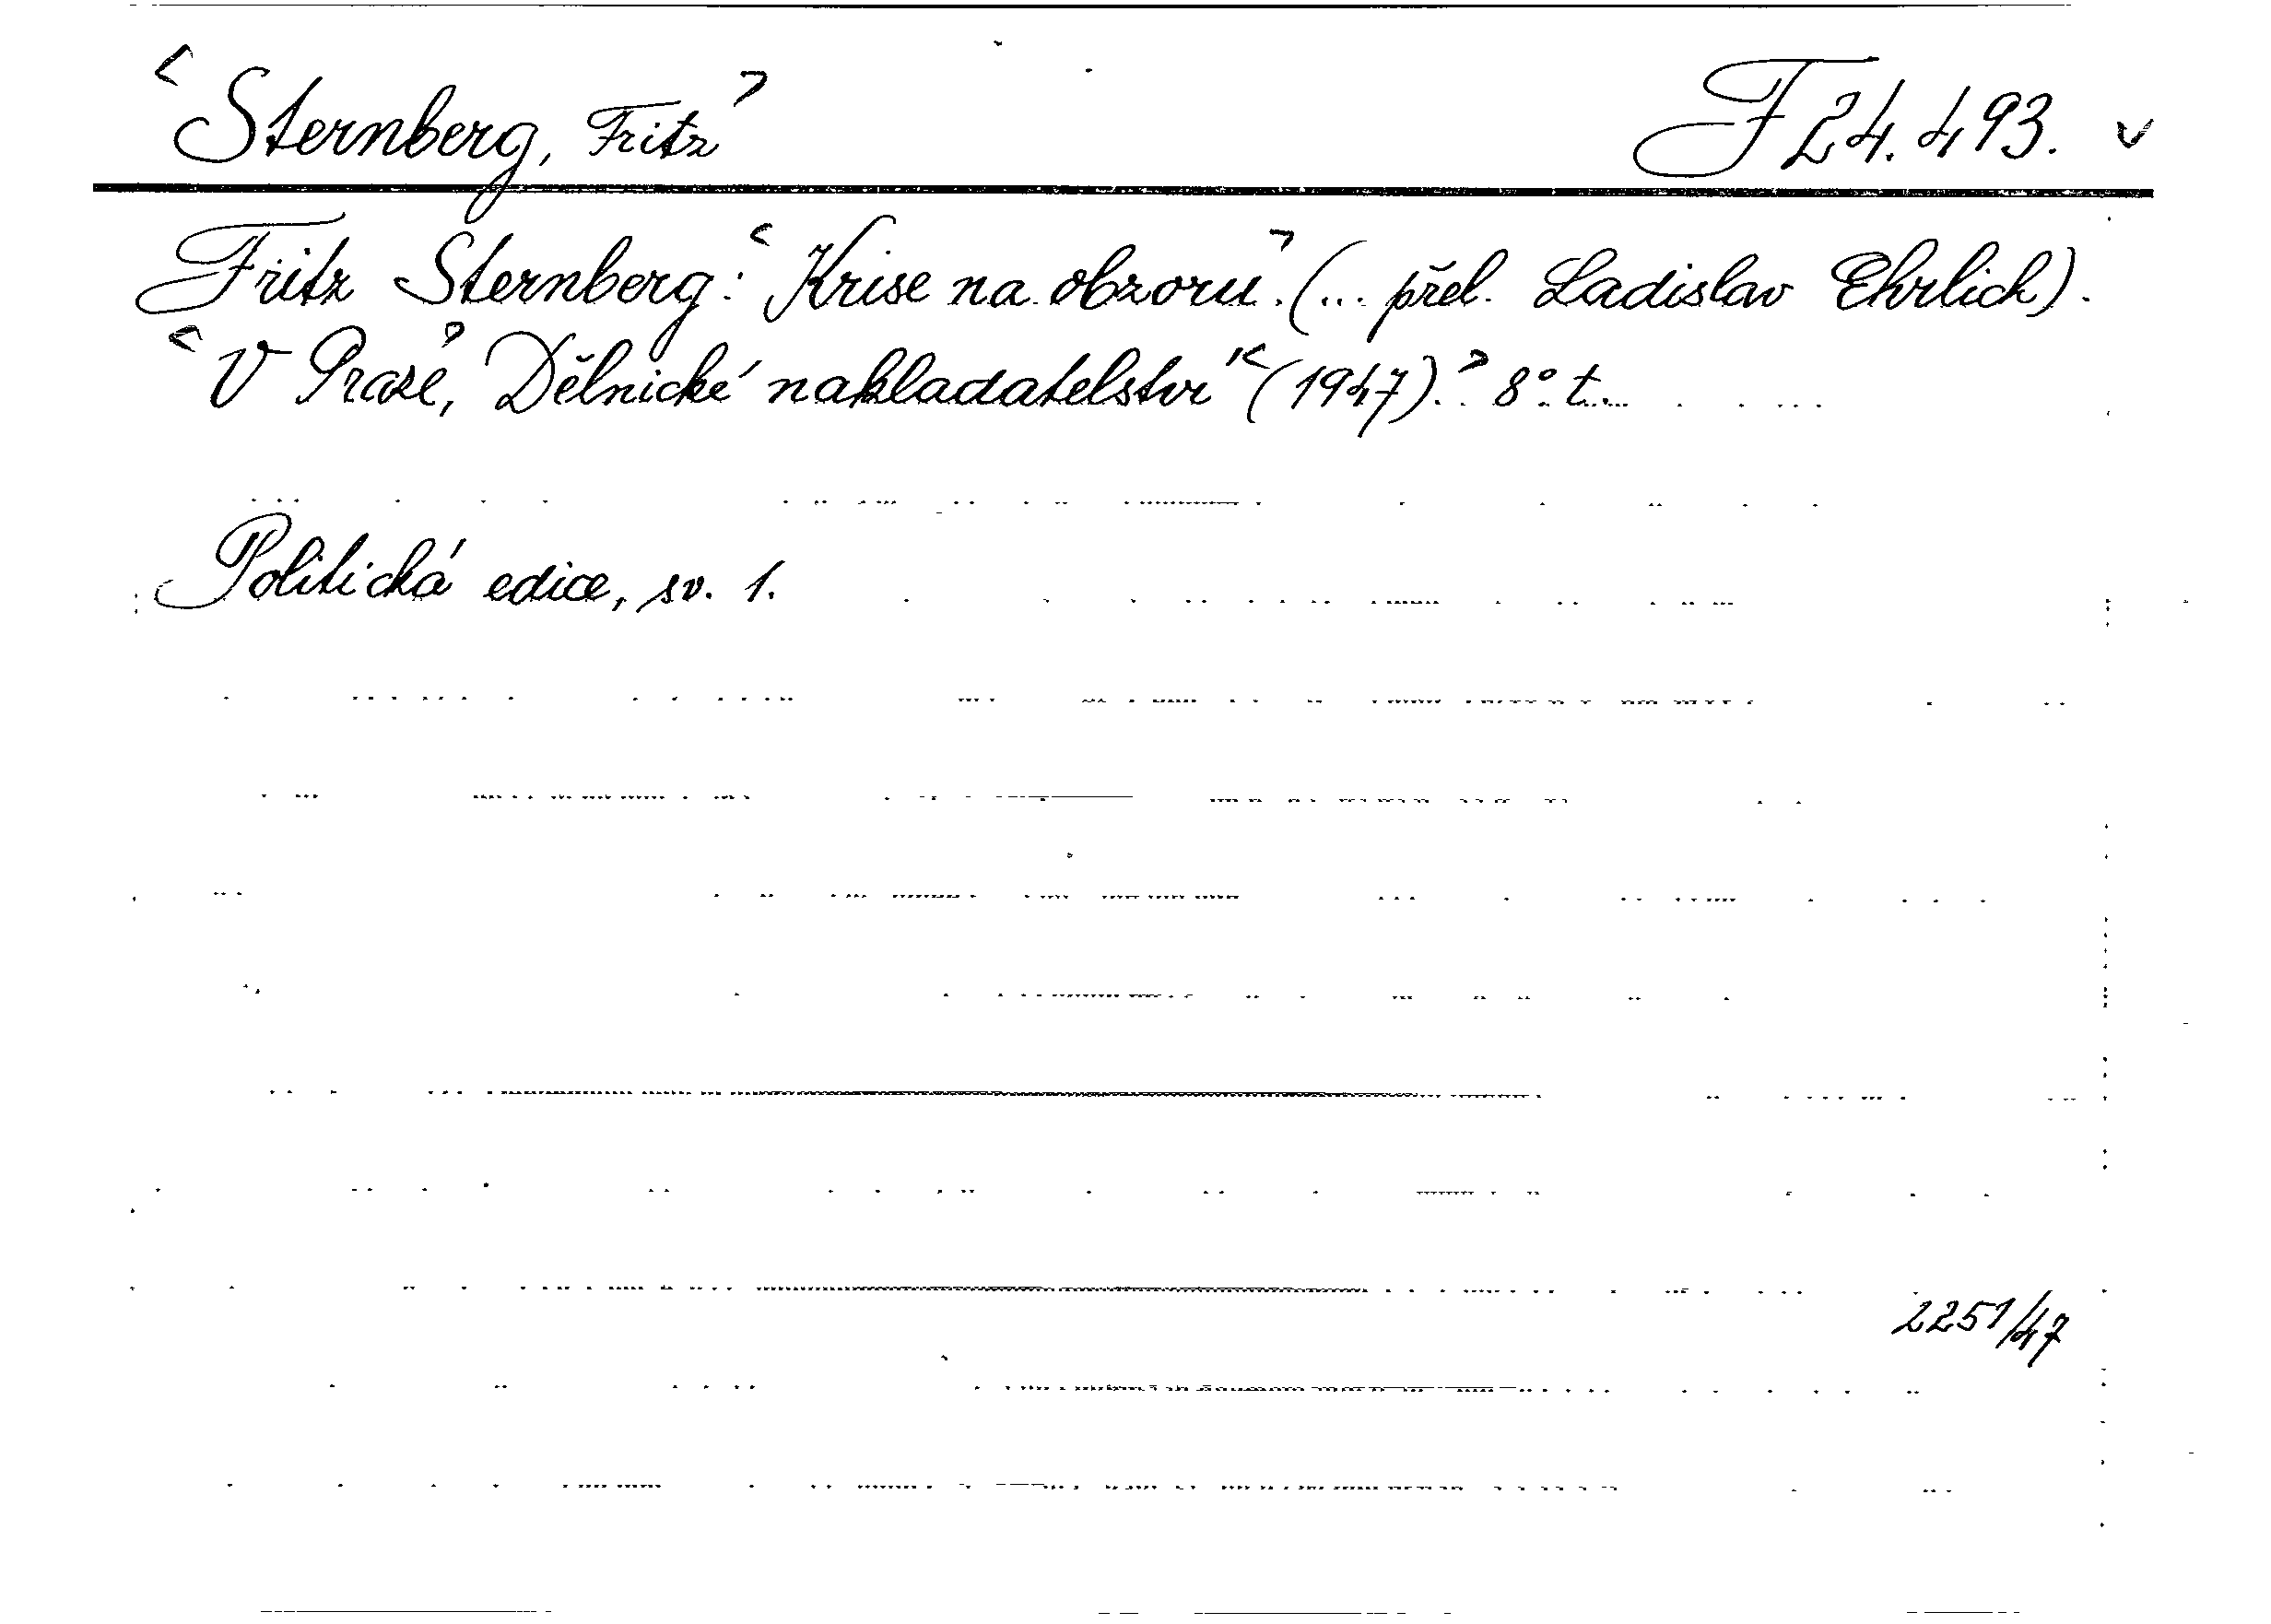 <Sternberg, Fritz> F 24.493. v
Fritz Sternberg: <Krise na obzoru>. (... přel. Ladislav Ehrlich).
<V Praze>, Dělnické nakladatelství <(1947).> 8°. t.
Politická edice, sv. 1.
2251/47